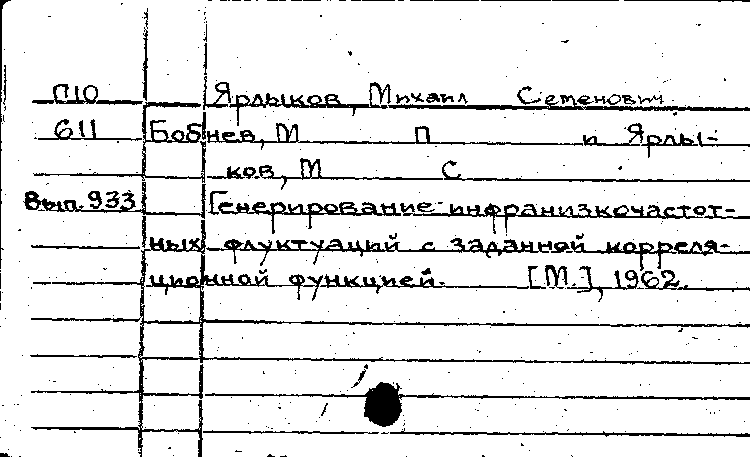 П10 Ярлыков, Михаил Семенович
611 Бобнев, М П и Ярлы-
ков, М С
Вып. 933 Генерирование инфранизкочастот-
ных флуктуаций с заданной корреля-
ционной функцией. [М.], 1962.